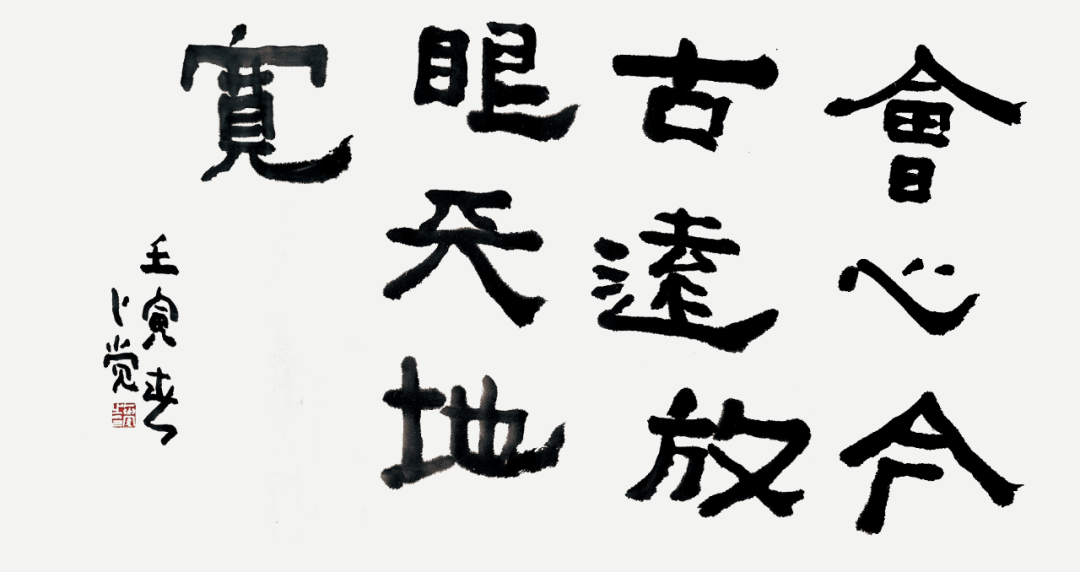 會心今
古遠放
眼天地
寬
壬寅春
卜觉